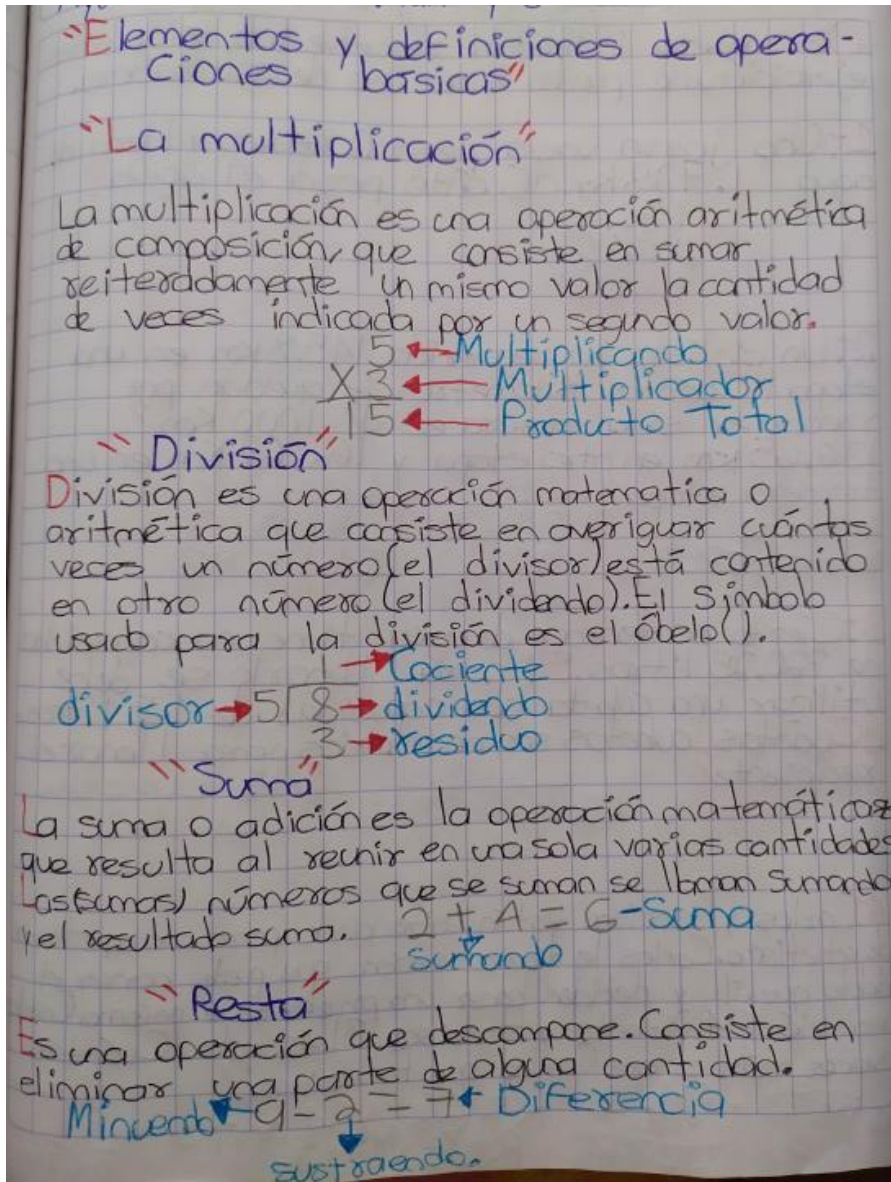 "Elementos y definiciones de opera-
ciones básicas"
"La multiplicación"
La multiplicación es una operación aritmética
de composición, que consiste en sumar
reiteradamente un mismo valor la cantidad
de veces indicada por un segundo valor.
5 ← Multiplicando
X 3 ← Multiplicador
15 ← Producto Total
"División"
División es una operación matematica o
aritmética que consiste en averiguar cuántas
veces un número (el divisor) está contenido
en otro número (el dividendo). El Símbolo
usado para la división es el óbelo().
1 → Cociente
divisor → 5 8 → dividendo
3 → residuo
"Suma"
La suma o adición es la operación matemática
que resulta al reunir en una sola varias cantidades
Los(sumas) números que se suman se llaman Sumando
y el resultado suma. 2 + 4 = 6 - Suma
sumando
"Resta"
Es una operación que descompone. Consiste en
eliminar una parte de alguna cantidad.
Minuendo ← 9 - 2 = 7 ← Diferencia
sustraendo.